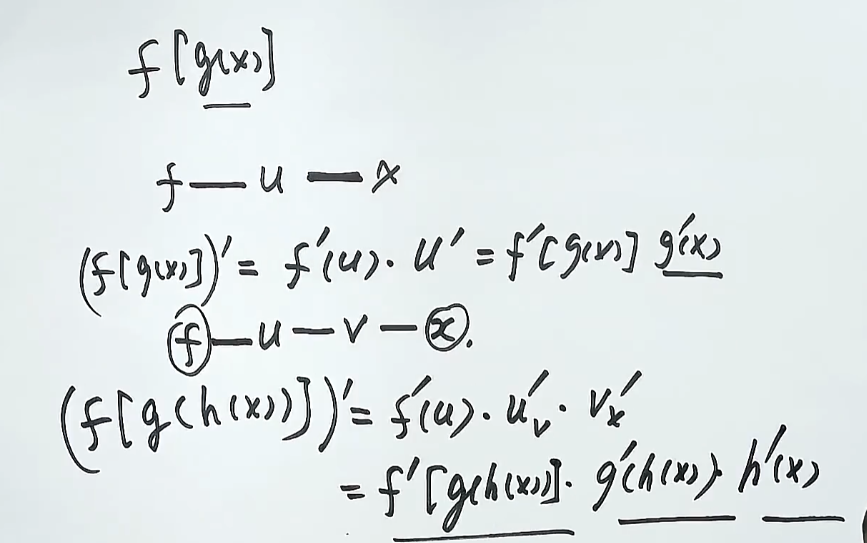 f[g(x)]
f—u—x
(f[g(x)])′= f′(u)·u′=f′[g(x)] g′(x)
f—u—v—x.
(f[g(h(x))])′= f′(u)·u′ᵥ·v′ₓ
=f′[g(h(x))]·g′(h(x))·h′(x)